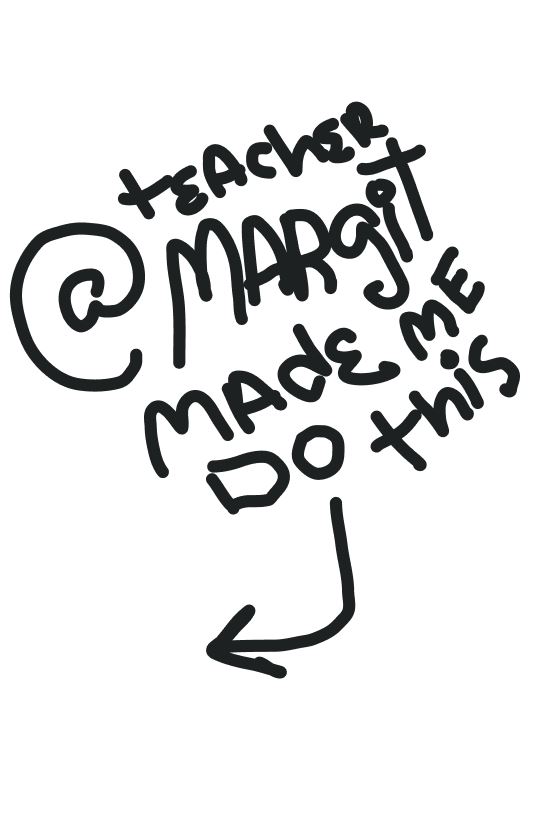 tEACHER
@MARgiT
MADE ME
DO this